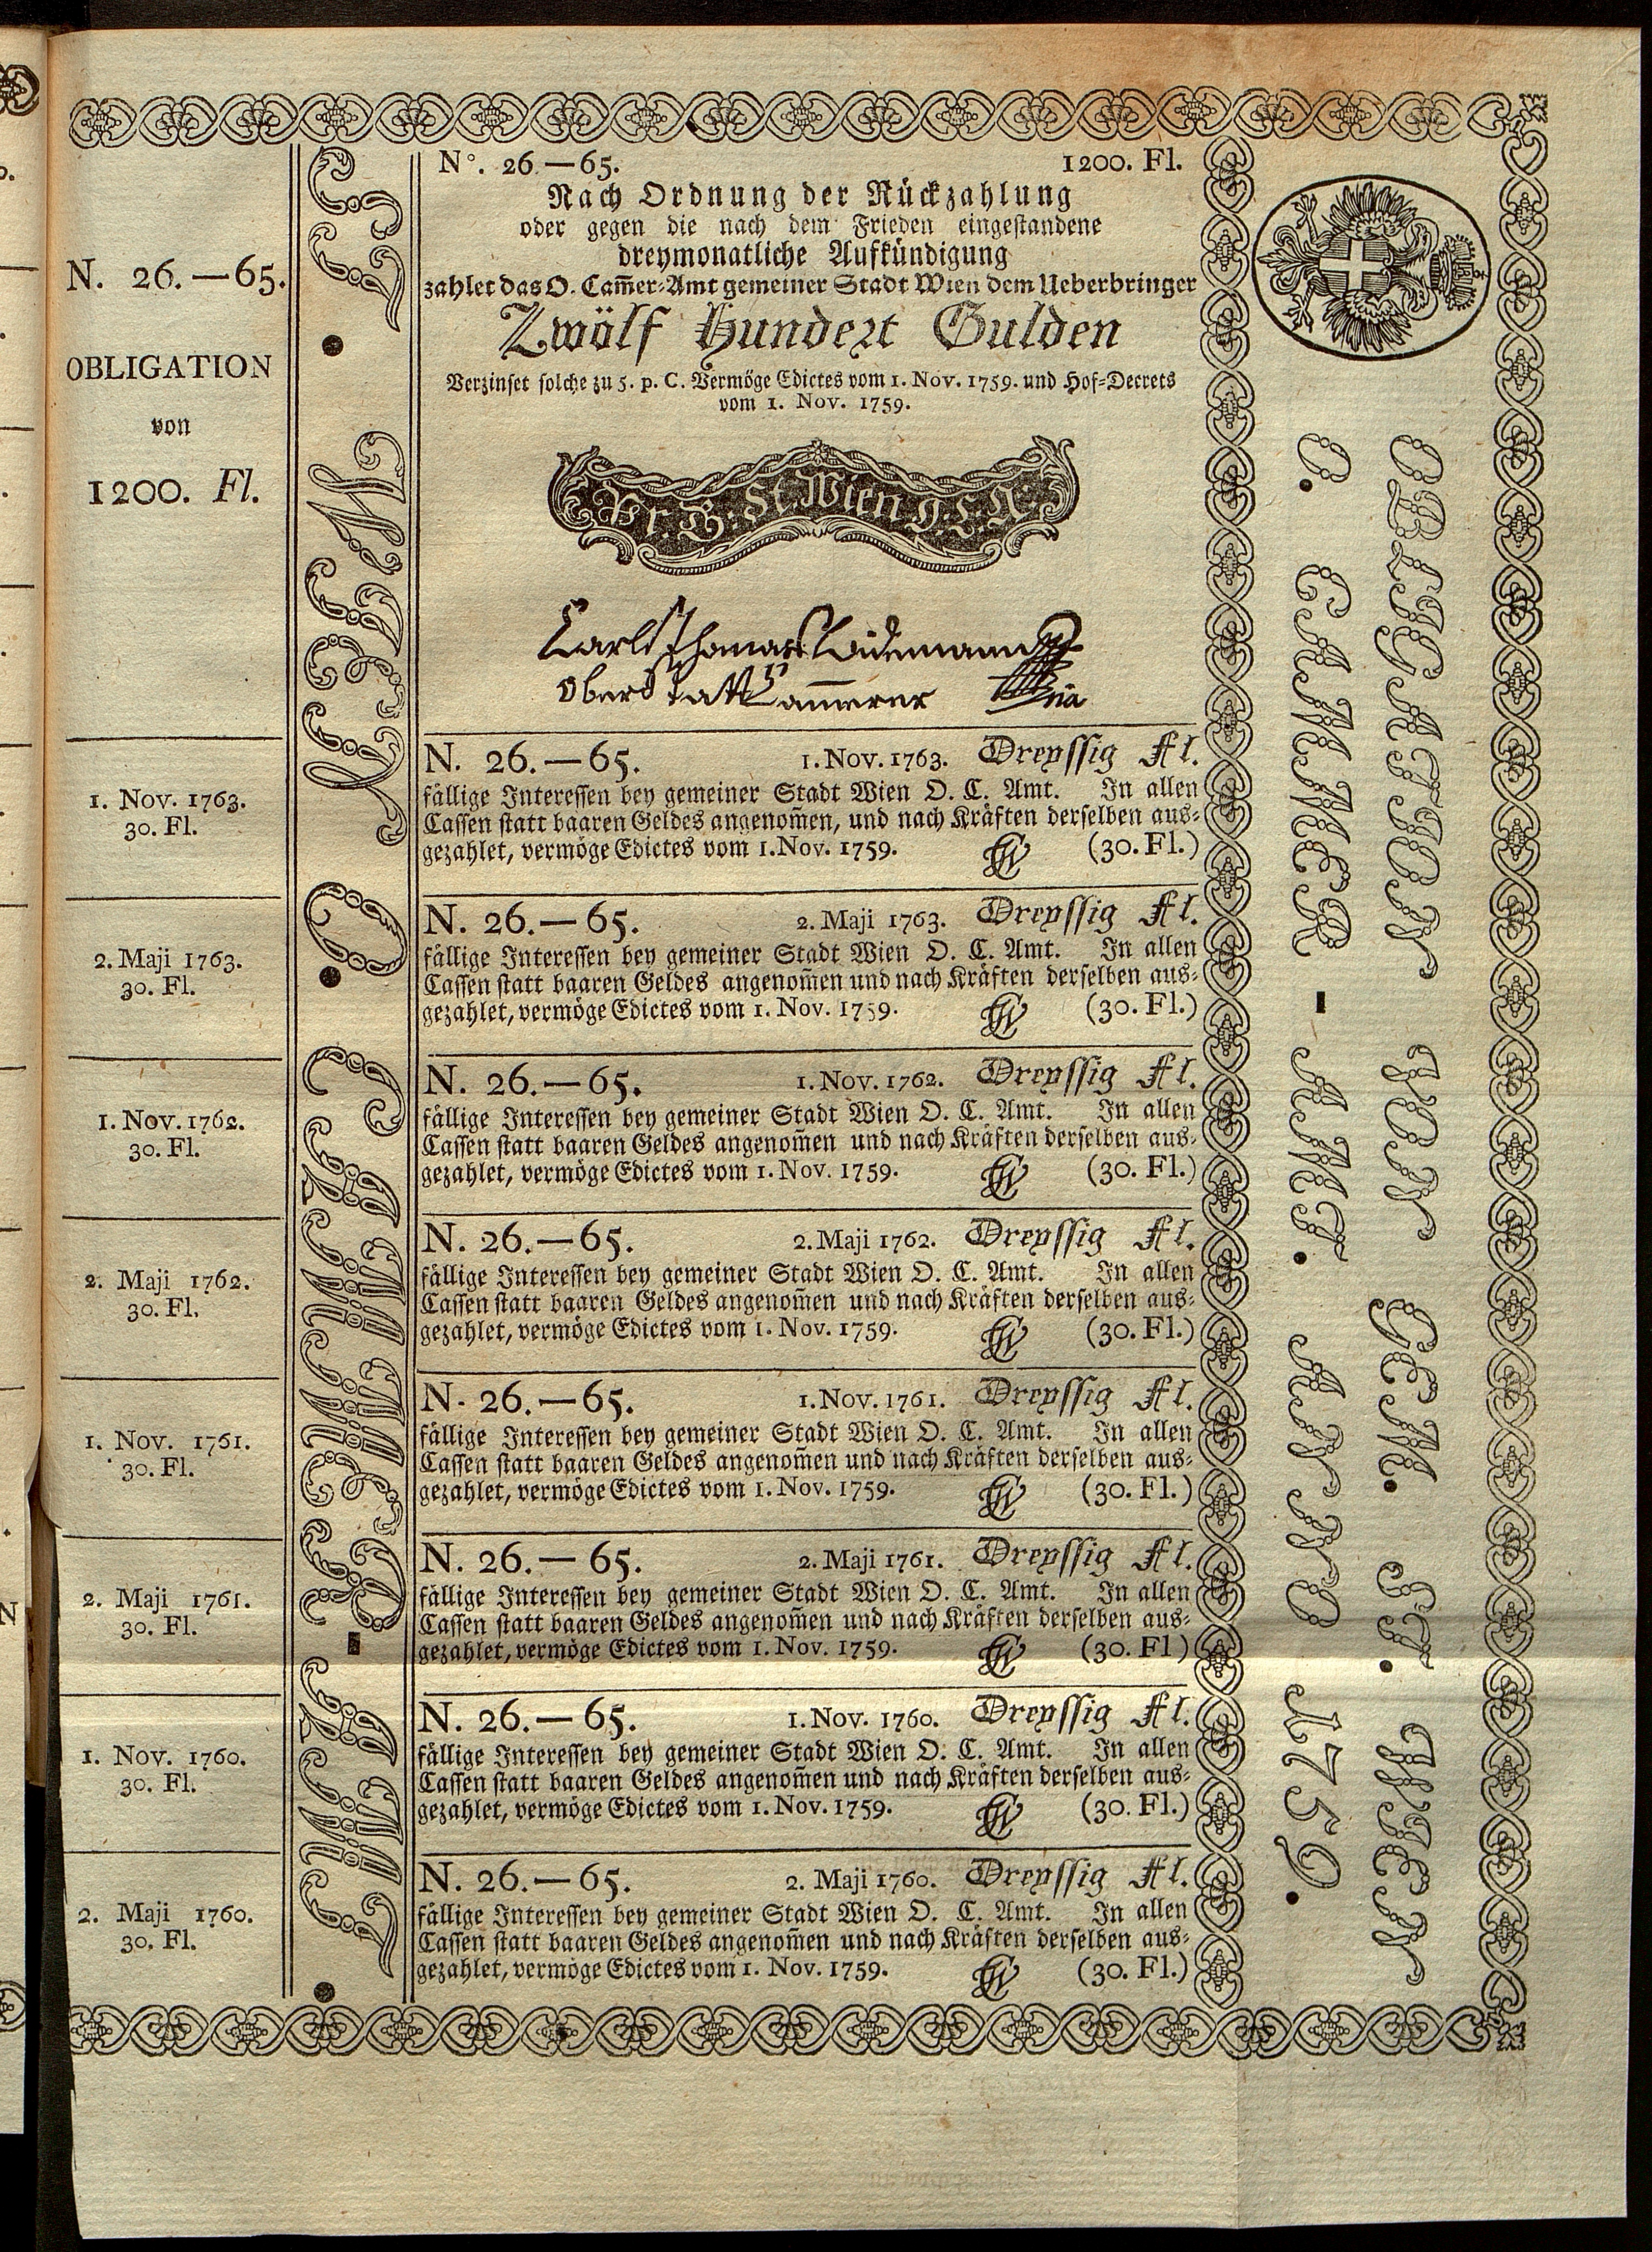 N. 26.—65.
OBLIGATION
von
1200. Fl.
1. Nov. 1763.
30. Fl.
2. Maji 1763.
30. Fl.
1. Nov. 1762.
30. Fl.
2. Maji 1762.
30. Fl.
1. Nov. 1761.
30. Fl.
2. Maji 1761.
30. Fl.
1. Nov. 1760.
30. Fl.
2. Maji 1760.
30. Fl.
ST. WIEN O. CAMMER - AMT.
N°. 26.—65. 1200. Fl.
Nach Ordnung der Rückzahlung
oder gegen die nach dem Frieden eingestandene
dreymonatliche Aufkündigung
zahlet das O. Cam̄er-Amt gemeiner Stadt Wien dem Ueberbringer
Zwölf Hundert Gulden
Verzinset solche zu 5. p. C. Vermöge Edictes vom 1. Nov. 1759. und Hof-Decrets
vom 1. Nov. 1759.
St. Wien
Carl Thomas
Oberstatt Cam̄erer
N. 26.—65. 1. Nov. 1763. Dreyssig Fl.
fällige Interessen bey gemeiner Stadt Wien O. C. Amt. In allen
Cassen statt baaren Geldes angenom̄en, und nach Kräften derselben aus-
gezahlet, vermöge Edictes vom 1. Nov. 1759. (30. Fl.)
N. 26.—65. 2. Maji 1763. Dreyssig Fl.
fällige Interessen bey gemeiner Stadt Wien O. C. Amt. In allen
Cassen statt baaren Geldes angenom̄en und nach Kräften derselben aus-
gezahlet, vermöge Edictes vom 1. Nov. 1759. (30. Fl.)
N. 26.—65. 1. Nov. 1762. Dreyssig Fl.
fällige Interessen bey gemeiner Stadt Wien O. C. Amt. In allen
Cassen statt baaren Geldes angenom̄en und nach Kräften derselben aus-
gezahlet, vermöge Edictes vom 1. Nov. 1759. (30. Fl.)
N. 26.—65. 2. Maji 1762. Dreyssig Fl.
fällige Interessen bey gemeiner Stadt Wien O. C. Amt. In allen
Cassen statt baaren Geldes angenom̄en und nach Kräften derselben aus-
gezahlet, vermöge Edictes vom 1. Nov. 1759. (30. Fl.)
N. 26.—65. 1. Nov. 1761. Dreyssig Fl.
fällige Interessen bey gemeiner Stadt Wien O. C. Amt. In allen
Cassen statt baaren Geldes angenom̄en und nach Kräften derselben aus-
gezahlet, vermöge Edictes vom 1. Nov. 1759. (30. Fl.)
N. 26.—65. 2. Maji 1761. Dreyssig Fl.
fällige Interessen bey gemeiner Stadt Wien O. C. Amt. In allen
Cassen statt baaren Geldes angenom̄en und nach Kräften derselben aus-
gezahlet, vermöge Edictes vom 1. Nov. 1759. (30. Fl)
N. 26.—65. 1. Nov. 1760. Dreyssig Fl.
fällige Interessen bey gemeiner Stadt Wien O. C. Amt. In allen
Cassen statt baaren Geldes angenom̄en und nach Kräften derselben aus-
gezahlet, vermöge Edictes vom 1. Nov. 1759. (30. Fl.)
N. 26.—65. 2. Maji 1760. Dreyssig Fl.
fällige Interessen bey gemeiner Stadt Wien O. C. Amt. In allen
Cassen statt baaren Geldes angenom̄en und nach Kräften derselben aus-
gezahlet, vermöge Edictes vom 1. Nov. 1759. (30. Fl.)
OBLIGATION VON GEM. ST. WIEN
O. CAMMER - AMT. ANNO 1759.